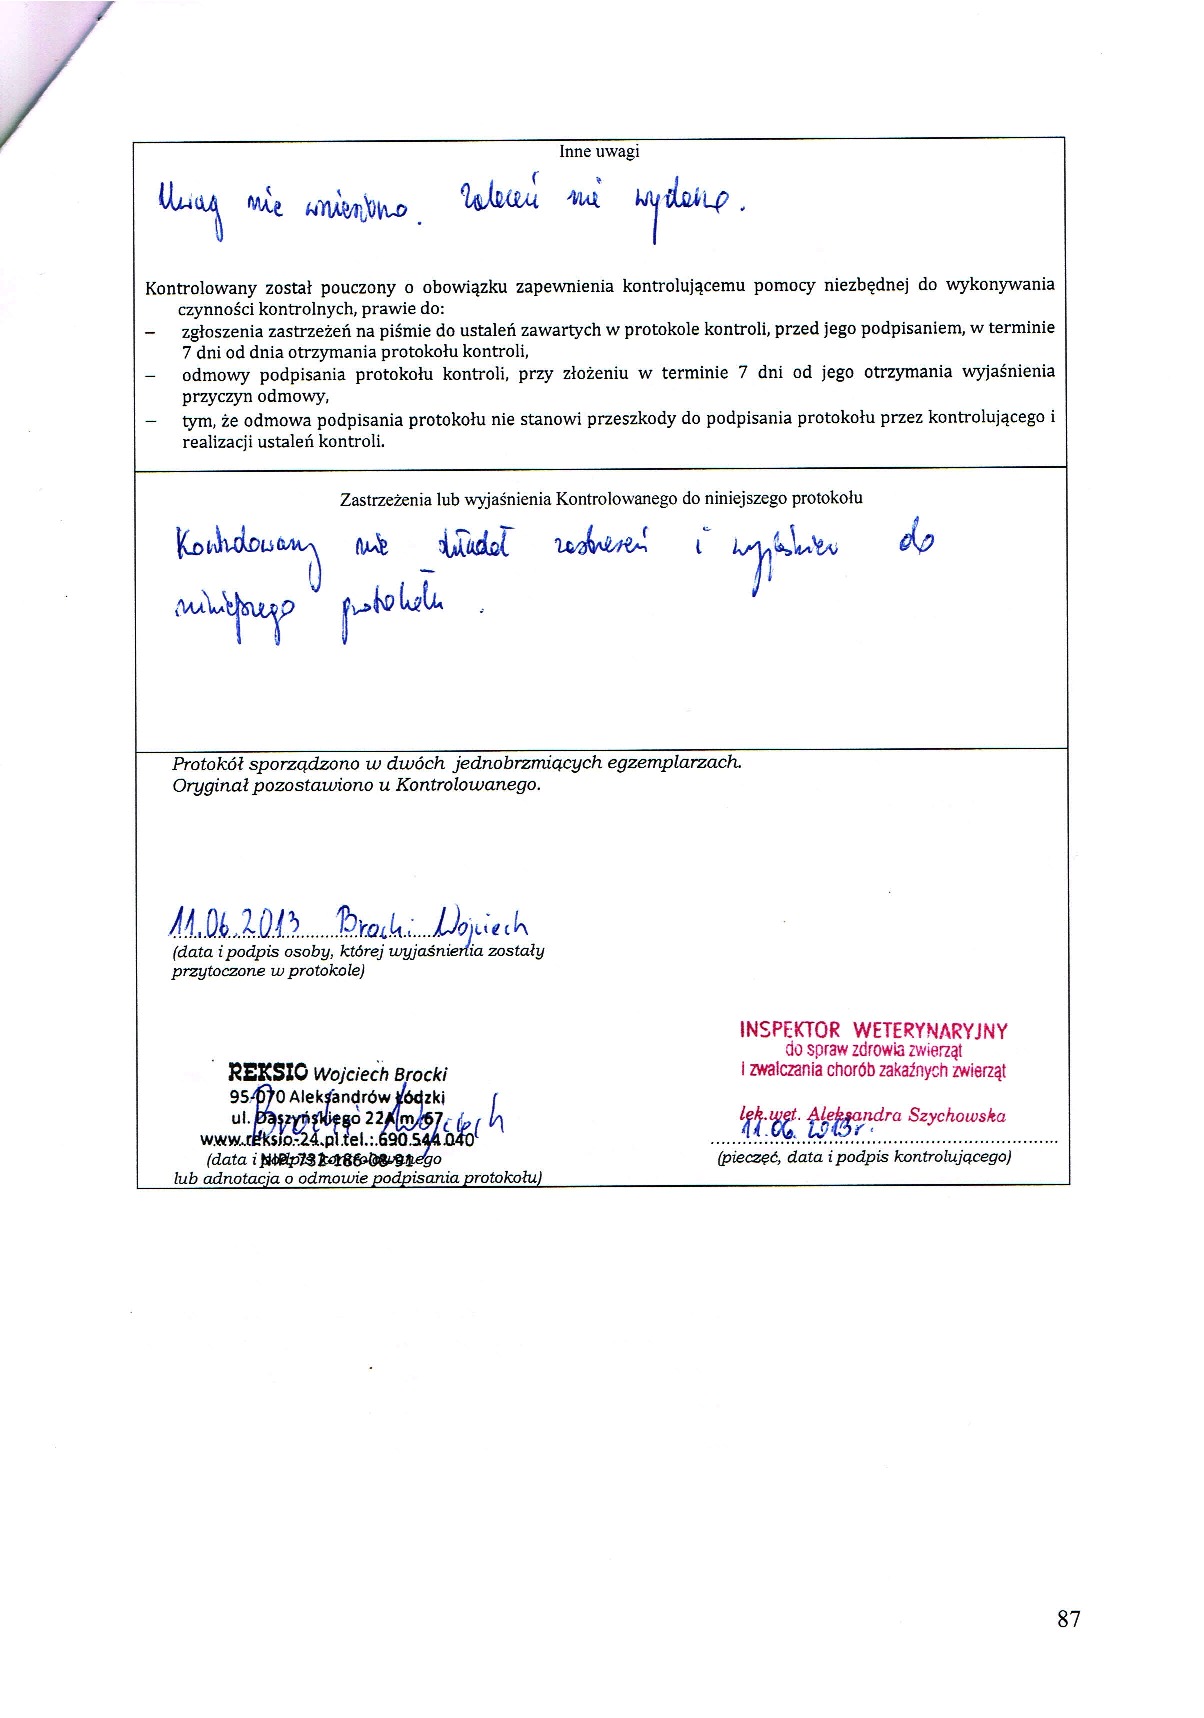 Inne uwagi
Uwag nie wniesiono. Zaleceń nie wydano.
Kontrolowany został pouczony o obowiązku zapewnienia kontrolującemu pomocy niezbędnej do wykonywania
czynności kontrolnych, prawie do:
– zgłoszenia zastrzeżeń na piśmie do ustaleń zawartych w protokole kontroli, przed jego podpisaniem, w terminie
7 dni od dnia otrzymania protokołu kontroli,
– odmowy podpisania protokołu kontroli, przy złożeniu w terminie 7 dni od jego otrzymania wyjaśnienia
przyczyn odmowy,
– tym, że odmowa podpisania protokołu nie stanowi przeszkody do podpisania protokołu przez kontrolującego i
realizacji ustaleń kontroli.
Zastrzeżenia lub wyjaśnienia Kontrolowanego do niniejszego protokołu
Kontrolowany nie składał zastrzeżeń i wyjaśnień do
niniejszego protokołu.
Protokół sporządzono w dwóch jednobrzmiących egzemplarzach.
Oryginał pozostawiono u Kontrolowanego.
11.06.2013 Brocki Wojciech
(data i podpis osoby, której wyjaśnienia zostały
przytoczone w protokole)
REKSIO Wojciech Brocki
95-070 Aleksandrów Łódzki
ul. Daszyńskiego 22A m. 67
www.reksio-24.pl tel.: 690 544 040
NIP: 732-186-08-91
Brocki Wojciech
(data i podpis kontrolowanego
lub adnotacja o odmowie podpisania protokołu)
INSPEKTOR WETERYNARYJNY
do spraw zdrowia zwierząt
i zwalczania chorób zakaźnych zwierząt
lek.wet. Aleksandra Szychowska
11.06.2013r.
(pieczęć, data i podpis kontrolującego)
87